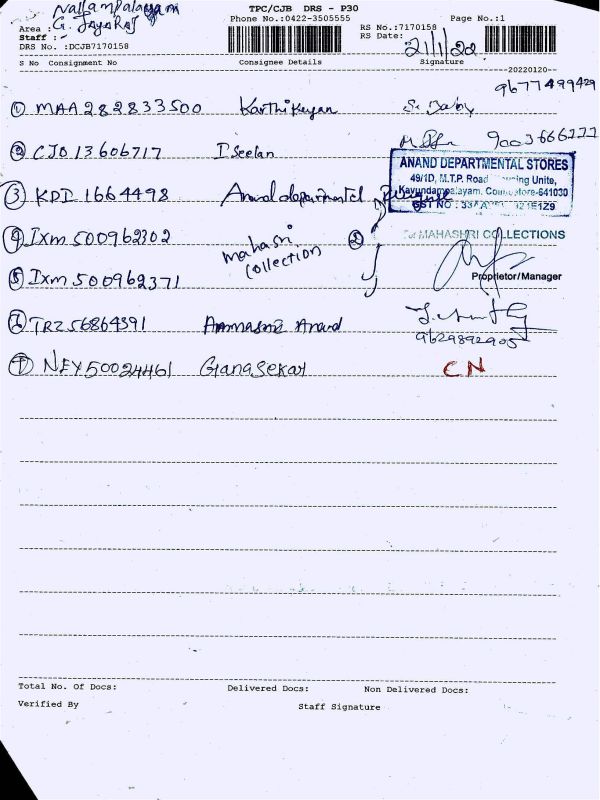 Nallampalayam
TPC/CJB DRS - P30
Area :
G. JAYARAJ
Phone No.:0422-3505555
RS No.:7170158
Page No.:1
Staff :
RS Date:
21/1/22
DRS No. :DCJB7170158
S No Consignment No
Consignee Details
Signature
20220120
9677499429
① MAA282833500 Karthikeyan S. Baby
② CJO13606717 I Seelan 9003666777
ANAND DEPARTMENTAL STORES
49/1D, M.T.P. Road
Unite,
③ KPI 1664498 Anand departmental
Kavundampalayam. 641030
GST NO :
④ Ixm 500962302 mahasri collection ②
For MAHASHRI COLLECTIONS
⑤ Ixm 500962371
Proprietor/Manager
TRZ56864391 Anand
9629892905
⑦ NEY50024461 Gianasekar CN
Total No. Of Docs:
Delivered Docs:
Non Delivered Docs:
Verified By
Staff Signature